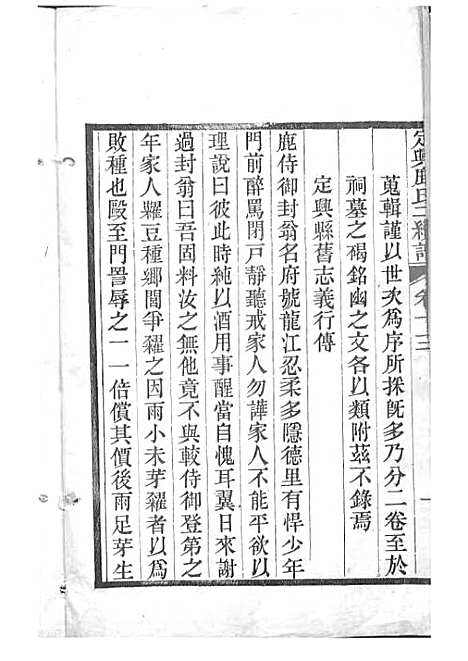 定興鹿氏二續譜 卷十三 一
蒐輯謹以世次爲序所採旣多乃分二卷至於
祠墓之碣銘幽之文各以類附茲不錄焉
定興縣舊志義行傳
鹿侍御封翁名府號龍江忍柔多隱德里有悍少年
門前醉罵閉戶靜聽戒家人勿譁家人不能平欲以
理說曰彼此時純以酒用事醒當自愧耳翼日來謝
過封翁曰吾固料汝之無他竟不與較侍御登第之
年家人糶豆種鄉閭爭糴之因雨小未芽糴者以爲
敗種也毆至門詈辱之一一倍償其價後雨足芽生